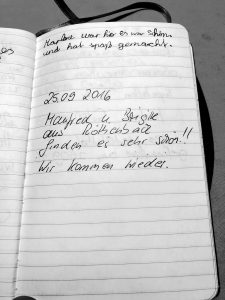 war hier es war schön
und hat spaß gemacht.
25.09 2016
Manfred u. Brigitte
aus Röthenbach
finden es sehr schön!!
Wir kommen wieder.